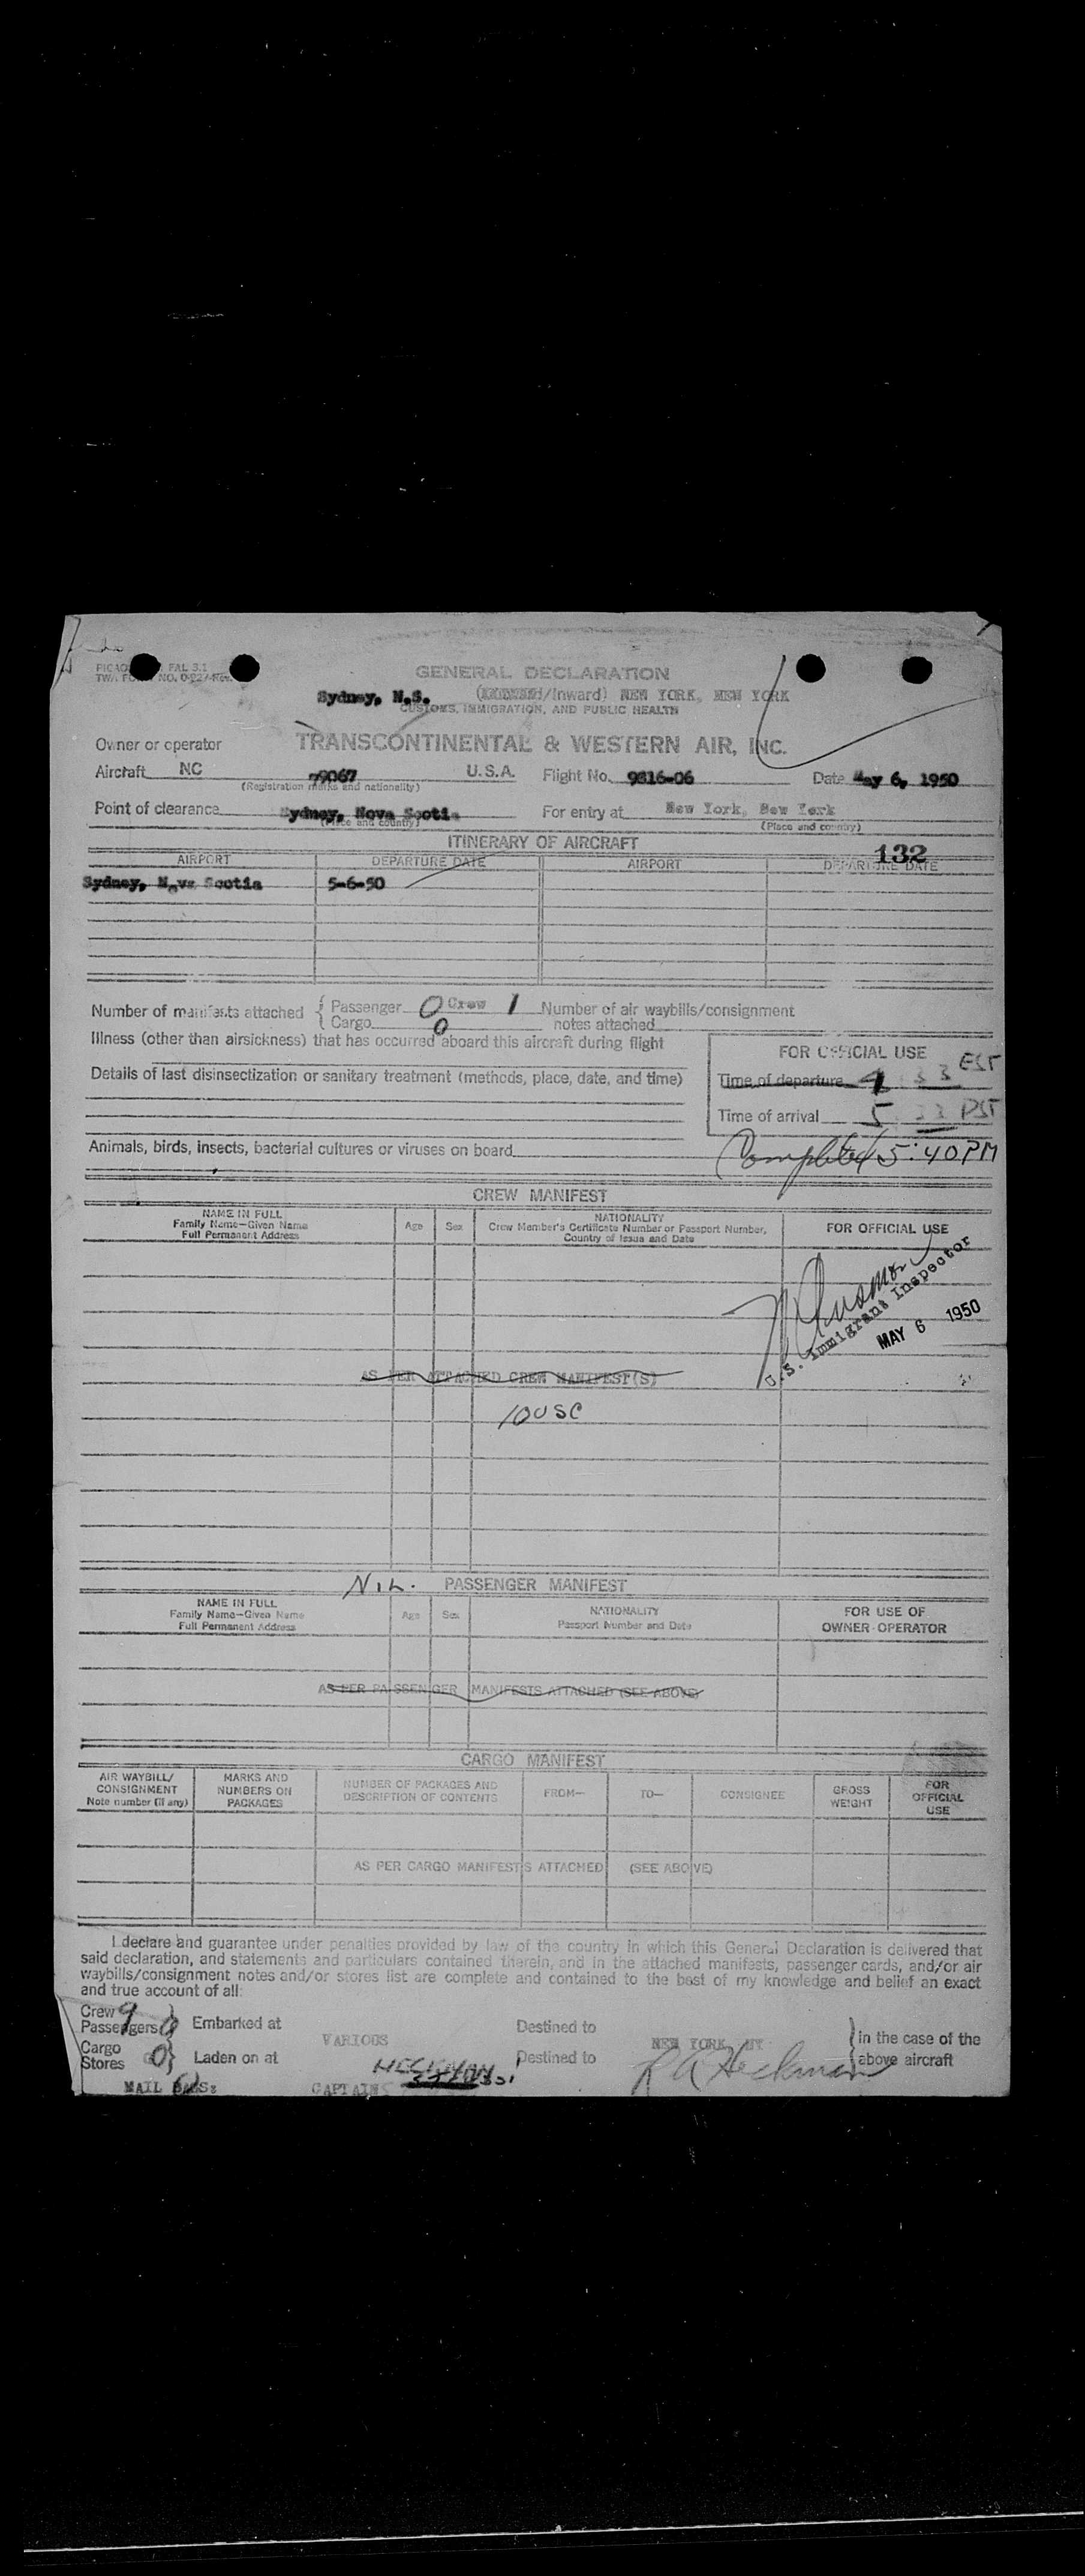 GENERAL DECLARATION
Sydney, N.S. /Inward) NEW YORK, NEW YORK
CUSTOMS, IMMIGRATION, AND PUBLIC HEALTH
Owner or operator TRANSCONTINENTAL & WESTERN AIR, INC.
Aircraft NC 79067 U.S.A. Flight No. 9816-06 Date May 6, 1950
(Registration marks and nationality)
Point of clearance Sydney, Nova Scotia For entry at New York, New York
(Place and country) (Place and country)
ITINERARY OF AIRCRAFT
132
AIRPORT DEPARTURE DATE AIRPORT DEPARTURE DATE
Sydney, Nova Scotia 5-6-50
Number of manifests attached { Passenger 0 Crew 1 Number of air waybills/consignment
Cargo 0 notes attached
Illness (other than airsickness) that has occurred aboard this aircraft during flight
FOR OFFICIAL USE
Details of last disinsectization or sanitary treatment (methods, place, date, and time)
Time of departure EST
Time of arrival 5
Animals, birds, insects, bacterial cultures or viruses on board
Completed 5:40PM
CREW MANIFEST
NAME IN FULL
Family Name—Given Name
Full Permanent Address
Age Sex
NATIONALITY
Crew Member's Certificate Number or Passport Number,
Country of Issue and Date
FOR OFFICIAL USE
U.S. Immigrant Inspector
MAY 6 1950
AS PER ATTACHED CREW MANIFEST(S)
10 USC
NIL. PASSENGER MANIFEST
NAME IN FULL
Family Name—Given Name
Full Permanent Address
Age Sex
NATIONALITY
Passport Number and Date
FOR USE OF
OWNER-OPERATOR
AS PER PASSENGER MANIFESTS ATTACHED (SEE ABOVE)
CARGO MANIFEST
AIR WAYBILL/
CONSIGNMENT
Note number (if any)
MARKS AND
NUMBERS ON
PACKAGES
NUMBER OF PACKAGES AND
DESCRIPTION OF CONTENTS
FROM—
TO—
CONSIGNEE
GROSS
WEIGHT
FOR
OFFICIAL
USE
AS PER CARGO MANIFESTS ATTACHED (SEE ABOVE)
I declare and guarantee under penalties provided by law of the country in which this General Declaration is delivered that
said declaration, and statements and particulars contained therein, and in the attached manifests, passenger cards, and/or air
waybills/consignment notes and/or stores list are complete and contained to the best of my knowledge and belief an exact
and true account of all:
Crew 9
Passengers 0 } Embarked at VARIOUS Destined to NEW YORK, NY } in the case of the
Cargo
Stores 0 } Laden on at Destined to above aircraft
HECKMAN R A Heckman
MAIL BAGS: CAPTAIN